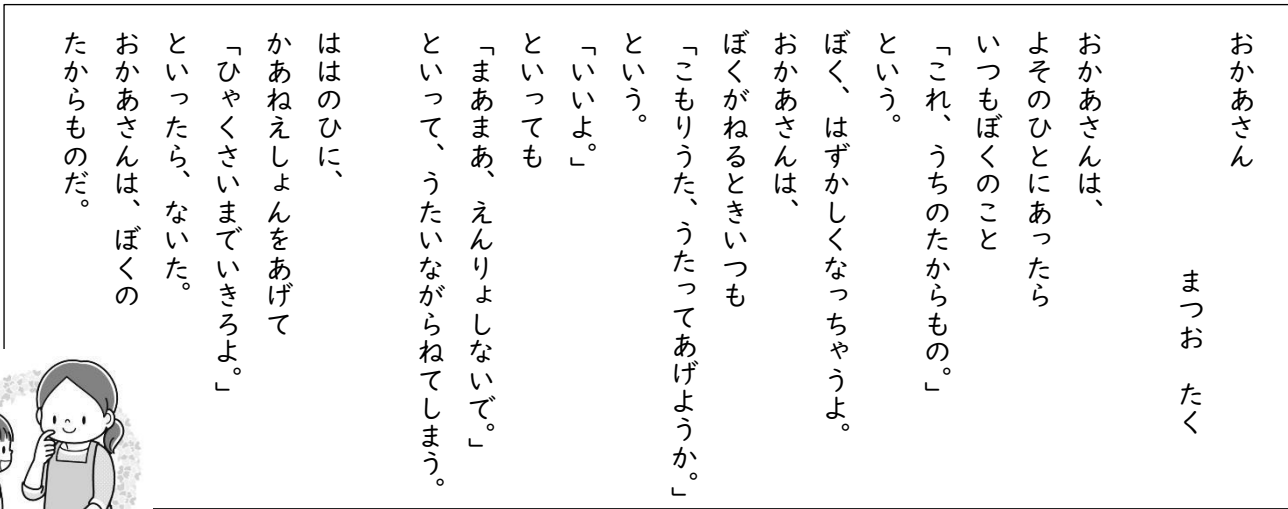 おかあさん
まつお　たく
おかあさんは、
よそのひとにあったら
いつもぼくのこと
「これ、うちのたからもの。」
という。
ぼく、はずかしくなっちゃうよ。
おかあさんは、
ぼくがねるときいつも
「こもりうた、うたってあげようか。」
という。
「いいよ。」
といっても
「まあまあ、えんりょしないで。」
といって、うたいながらねてしまう。
ははのひに、
かあねえしょんをあげて
「ひゃくさいまでいきろよ。」
といったら、ないた。
おかあさんは、ぼくの
たからものだ。